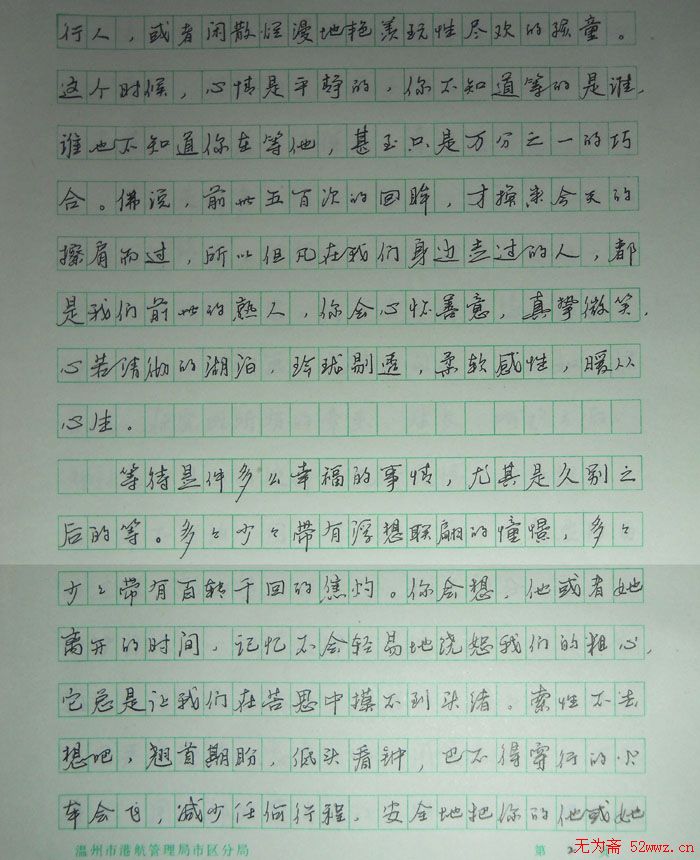 行人，或者闲散烂漫地艳羡玩性尽欢的孩童。
这个时候，心情是平静的，你不知道等的是谁，
谁也不知道你在等他，甚至只是万分之一的巧
合。佛说，前世五百次的回眸，才换来今天的
擦肩而过，所以但凡在我们身边走过的人，都
是我们前世的熟人，你会心怀善意，真挚微笑，
心若清彻的湖泊，玲珑剔透，柔软感性，暖从
心生。
等待是件多么幸福的事情，尤其是久别之
后的等。多々少々带有浮想联翩的憧憬，多々
少々带有百转千回的焦灼。你会想，他或者她
离开的时间，记忆不会轻易地饶恕我们的粗心，
它总是让我们在苦思中摸不到头绪。索性不去
想吧，翘首期盼，低头看钟，巴不得穿行的
车会飞，减少任何行程，安全地把你的他或她
温州市港航管理局市区分局 第 2
无为斋 52wwz.cn